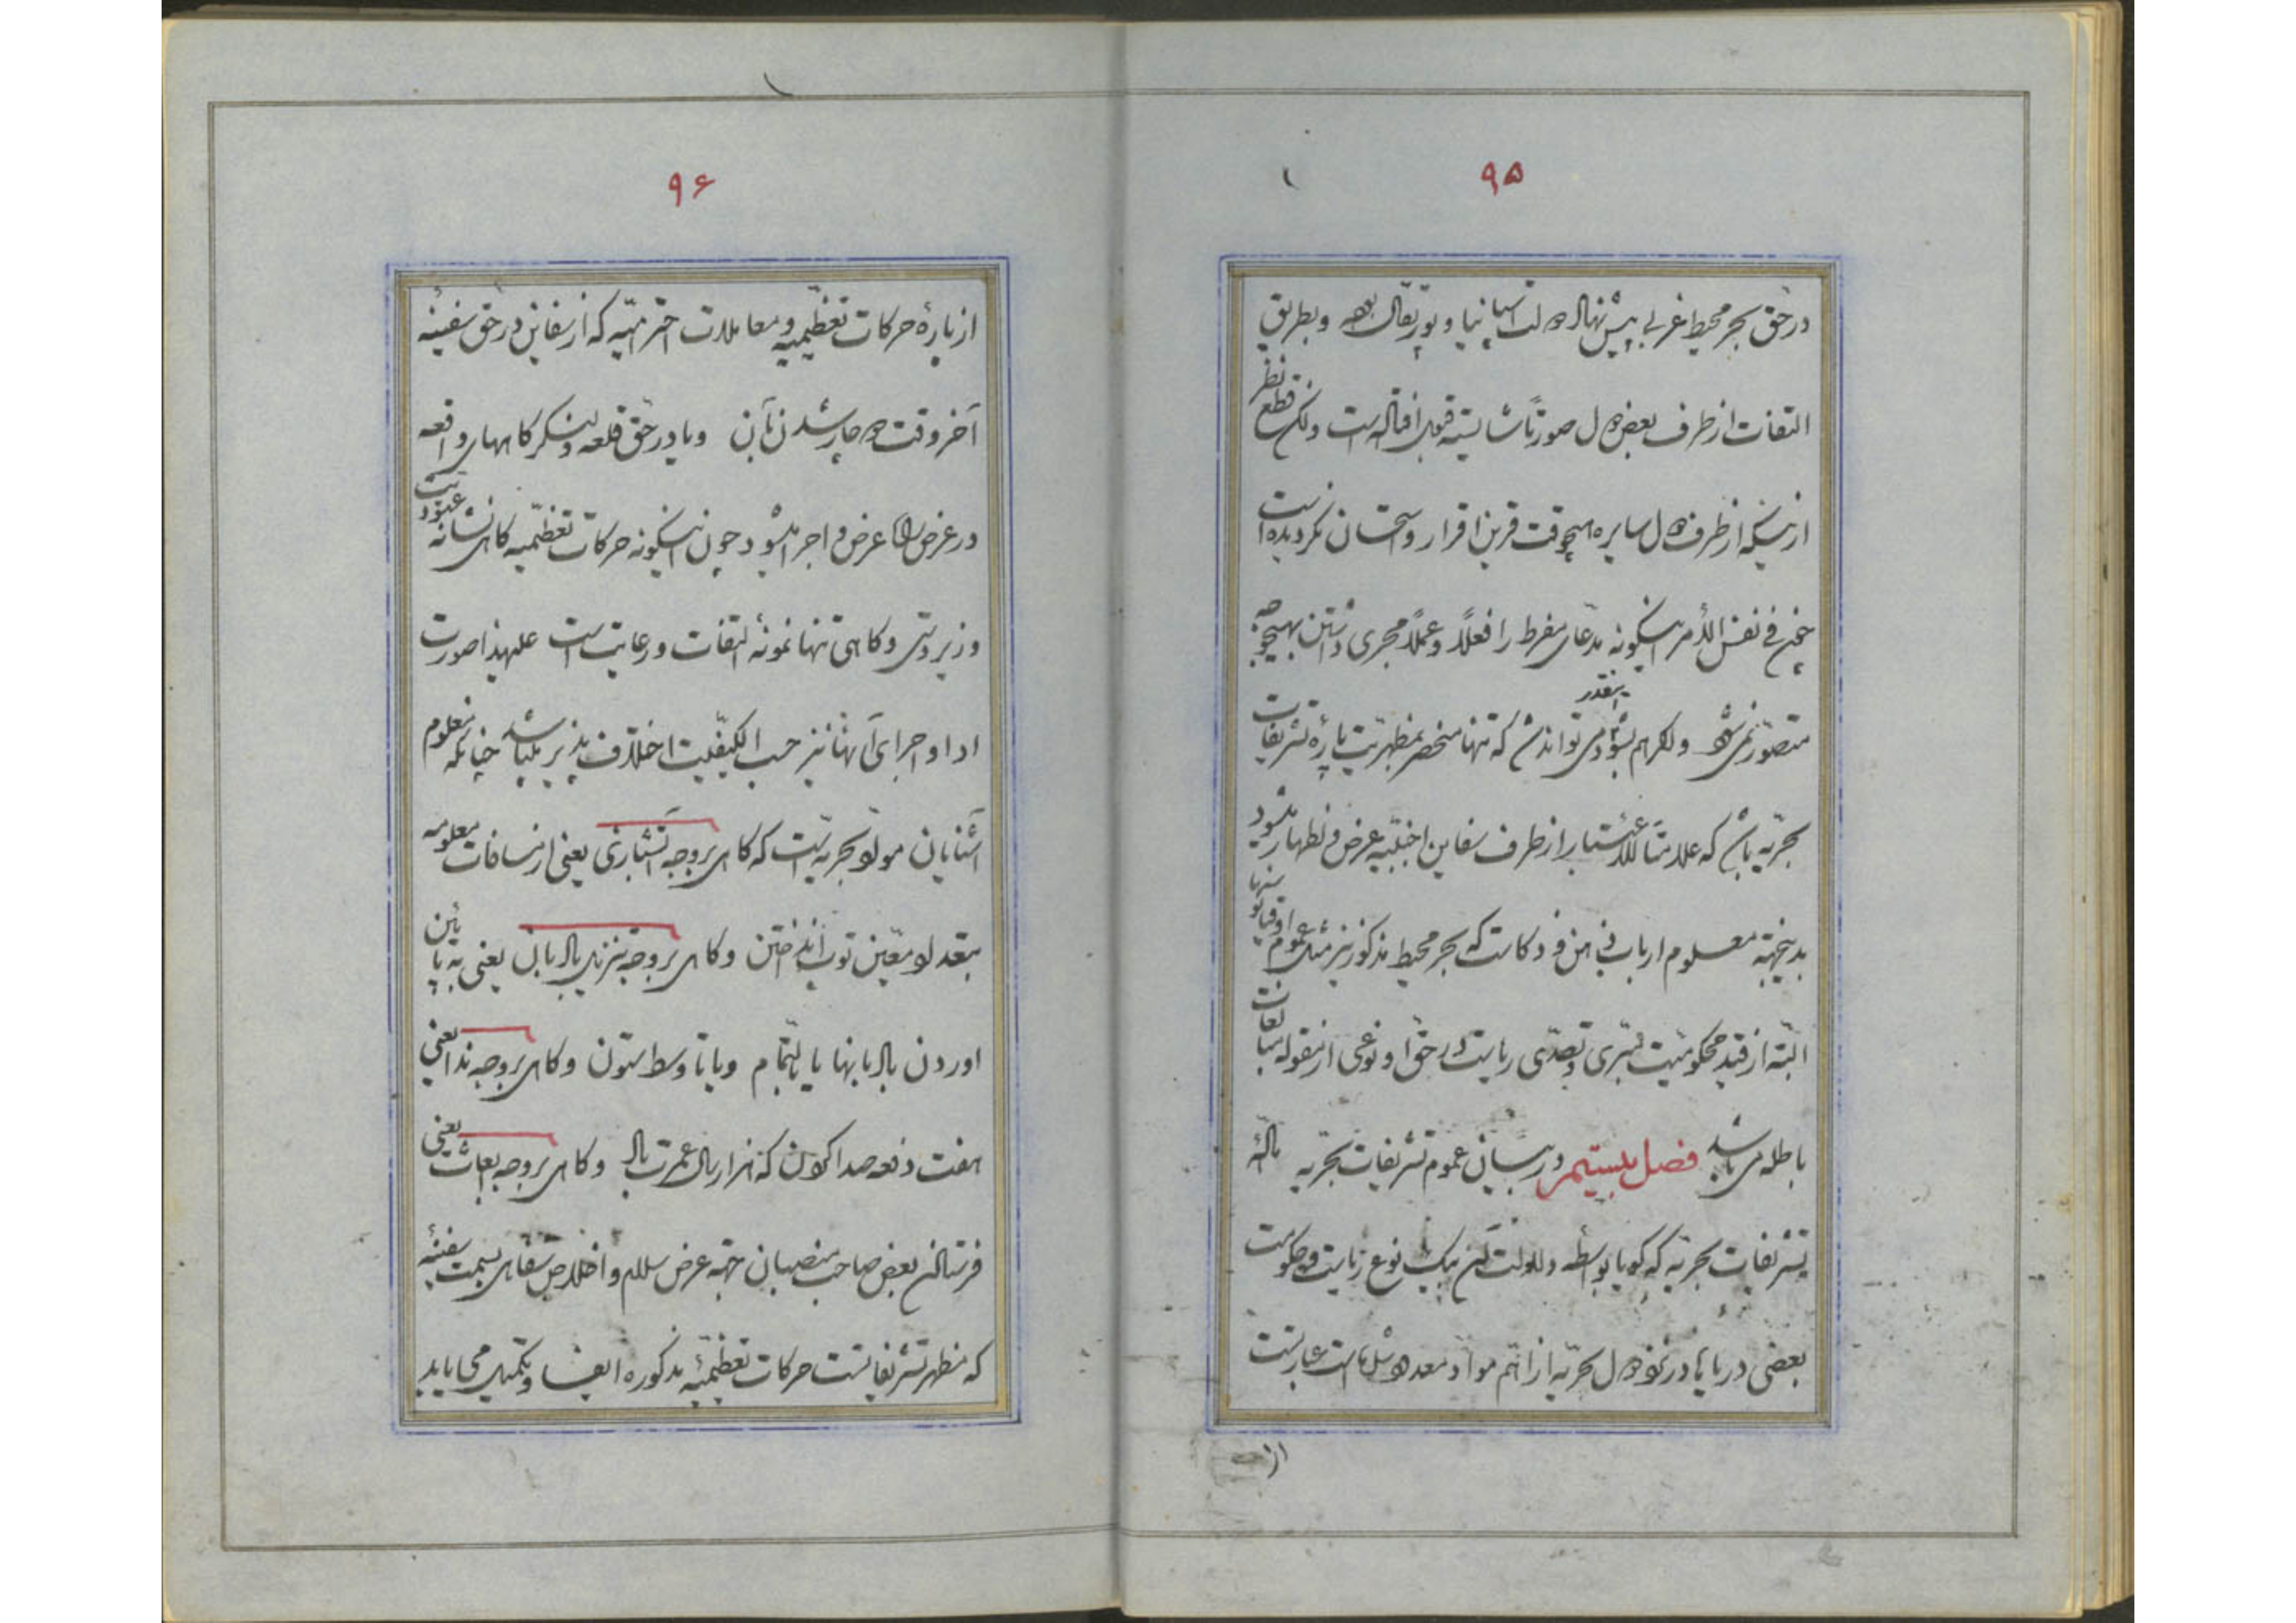 ۹۵
در حق بحر محیط غربی پیش نهاد دولت اسپانیا و پورتقال بوده و بطریق
التفات از طرف بعض دول صورتاً شایسته قبول افتاده است ولکن قطع نظر
از اینکه از طرف دول سایره هیچوقت قرین اقرار و استحسان نکردیده است
چون فی نفس الأمر اینکونه مدعای مفرط را فعلاً و عملاً مجری داشتن بهیچوجه
متصور نمی‌شود ولکر هم بشود اینقدر می تواند شد که تنها منحصر بمظهریت پارهٔ تشریفات
بحریه باشد که علامتاً للاستیار از طرف سفاین اجنبیه عرض و اظهار میشود
بدینجهة معلوم ارباب فن و ذکاست که بحر محیط مذکور نیز مثل عموم اوقیانوسها
البته از قید محکومیت مبری و تصدی ریاست در حق او نوعی از مقوله مبالغات
باطله می باشد فصل بیستم در بیان عموم تشریفات بحریه مسألهٔ
تشریفات بحریه که کویا بواسطه دلالت آن بیک نوع ریاست و حکومت
بعضی دریاها در نزد دول بحریه از اهم مواد معدود شده است عبارتست
از
۹۶
از پارهٔ حرکات تعظیمیه و معاملات احترامیه که از سفاین در حق سفینهٔ
آخر وقت دوچار شدن بآن ویا در حق قلعه و لنکرکاههای واقعه
در عرض راه عرض و اجرا میشود چون اینکونه حرکات تعظیمیه کاهی نشانه عبودیت
و زیردستی و کاهی تنها نمونهٔ التفات و رعایت است علیهذا صورت
ادا و اجرای آنها نیز حسب الکیفیت اختلاف پذیر میباشد چنانکه معلوم
آشنایان مواد بحریه است که کاهی بروجه آتشبازی یعنی از مسافات معلومه
بتعداد معین توپ انداختن و کاهی بروجه تنزیل بادبان یعنی به پائین
اوردن بادبانها یا بالتمام ویا تا وسط ستون و کاهی بروجه ندا یعنی
هفت دفعه صدا کردن که هزار سال عمرت باد و کاهی بروجه بعاث یعنی
فرستادن بعض صاحب منصبان جهة عرض سلام و اخلاص سفاهی بسمت سفینهٔ
که مظهر تشریفاتست حرکات تعظیمیهٔ مذکوره ایفا و تکمیل می یابد